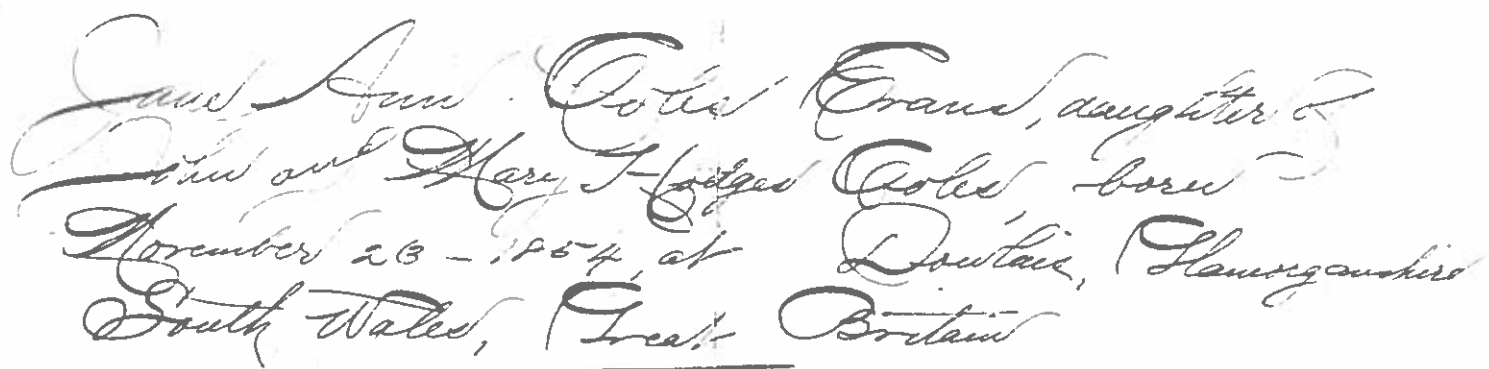 Jane Ann Coles Evans, daughter of
John and Mary Hodges Coles, born
November 23 - 1854, at Dowlais, Glamorganshire
South Wales, Great Britain